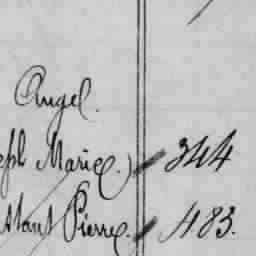 Angel.
eph Marie.) 344
stant Pierre. 483.